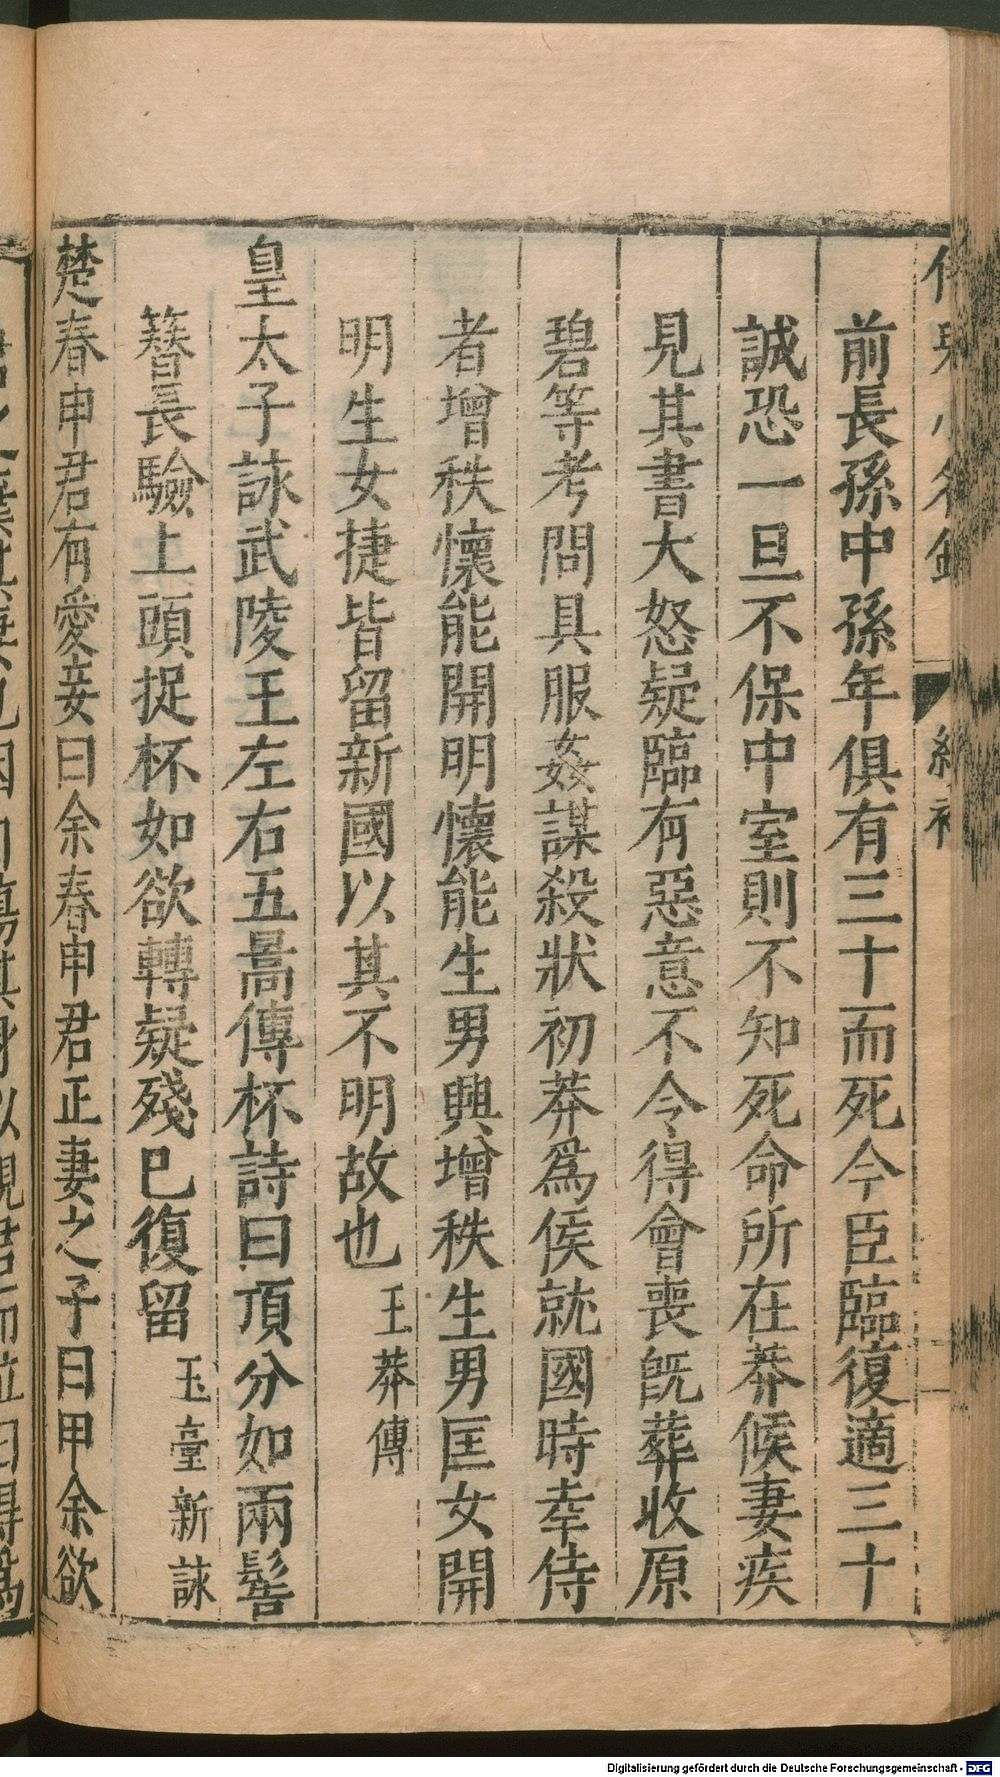 前長孫中孫年俱有三十而死今臣臨復適三十
誠恐一旦不保中室則不知死命所在莽候妻疾
見其書大怒疑臨有惡意不令得會喪既葬收原
碧等考問具服姦謀殺狀初莽爲侯就國時幸侍
者增秩懷能開明懷能生男興增秩生男匡女開
明生女捷皆留新國以其不明故也 王莽傳
皇太子詠武陵王左右五暠傳杯詩曰頂分如兩髻
簪長驗上頭捉杯如欲轉疑殘巳復留 玉臺新詠
楚春申君有愛妾曰余春申君正妻之子曰甲余欲
Digitalisierung gefördert durch die Deutsche Forschungsgemeinschaft - DFG